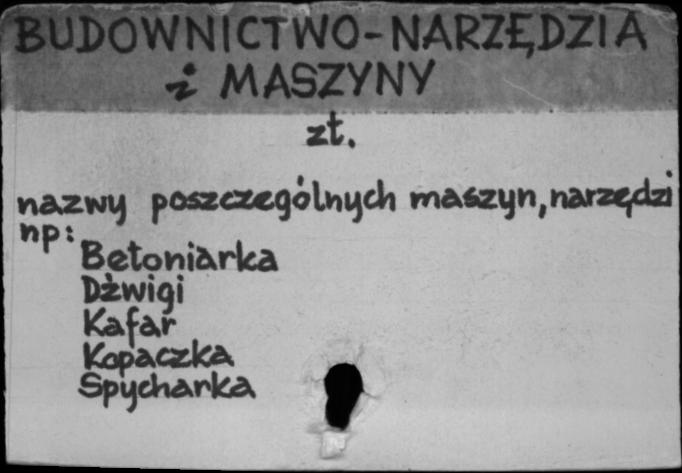 BUDOWNICTWO-NARZĘDZIA
i MASZYNY
zt.
nazwy poszczególnych maszyn, narzędzi
np:
Betoniarka
Dźwigi
Kafar
Kopaczka
Spycharka